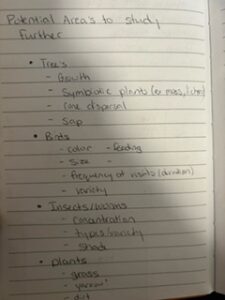 Potential Area's to study
Further
• Trees
- Growth
- Symbiotic plants (ex moss, lichen)
- Cone dispersal
- Sap
• Birds
- color - feeding
- Size -
- frequency of visits (duration)
- variety
• Insects/worms
- concentration
- types/variety
- shade
• plants
- grass
- yarrow
- dirt